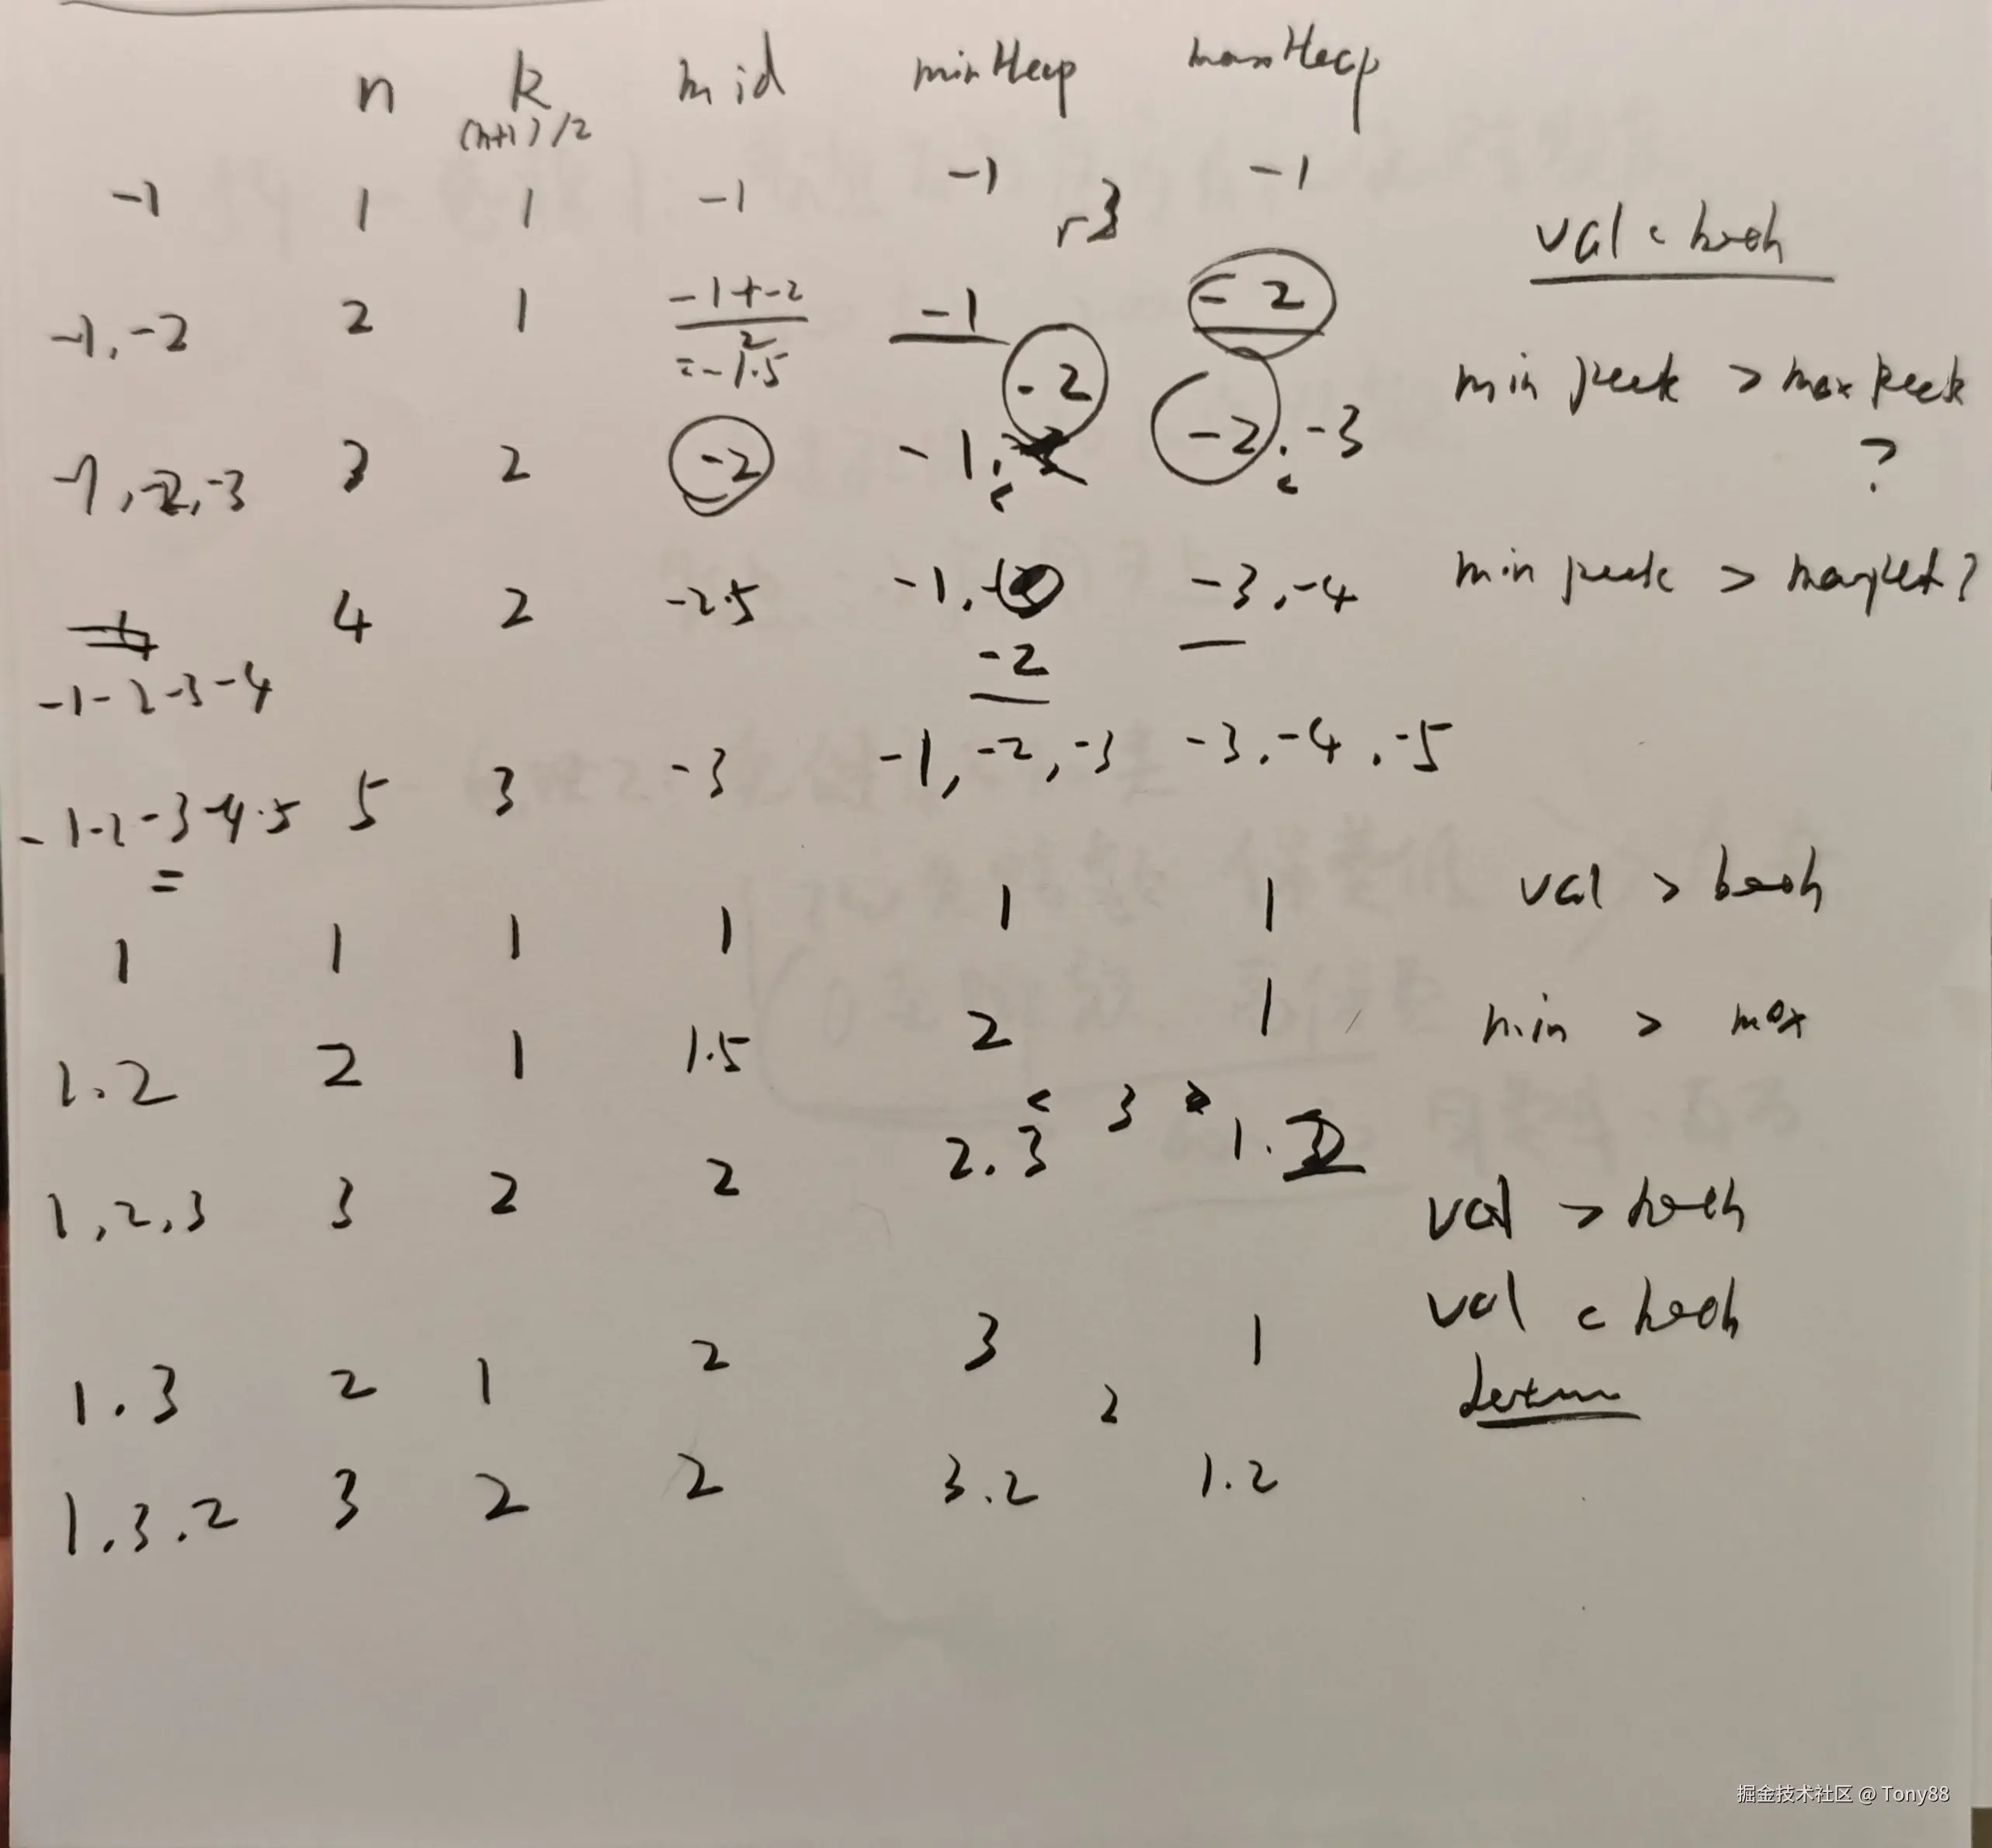 n k mid minHeap maxHeap
(n+1)/2
-1 1 1 -1 -1 -1
val < both
-1, -2 2 1 -1+-2 -1 -2
2
=-1.5
-2
min peek > max peek
?
-1, -2, -3 3 2 -2 -1, -2, -3
4 2 -2.5 -1, -3, -4 min peek > max peek?
-2
-1 -2 -3 -4
-1 -2 -3 -4 -5 5 3 -3 -1, -2, -3 -3, -4, -5
=
val > both
1 1 1 1 1 1
1.2 2 1 1.5 2 1 min > max
< 3 >
1,2,3 3 2 2 2.3 1.
val > both
val < both
1.3 2 1 2 3 1
2
1.3.2 3 2 2 3.2 1.2
掘金技术社区 @ Tony88